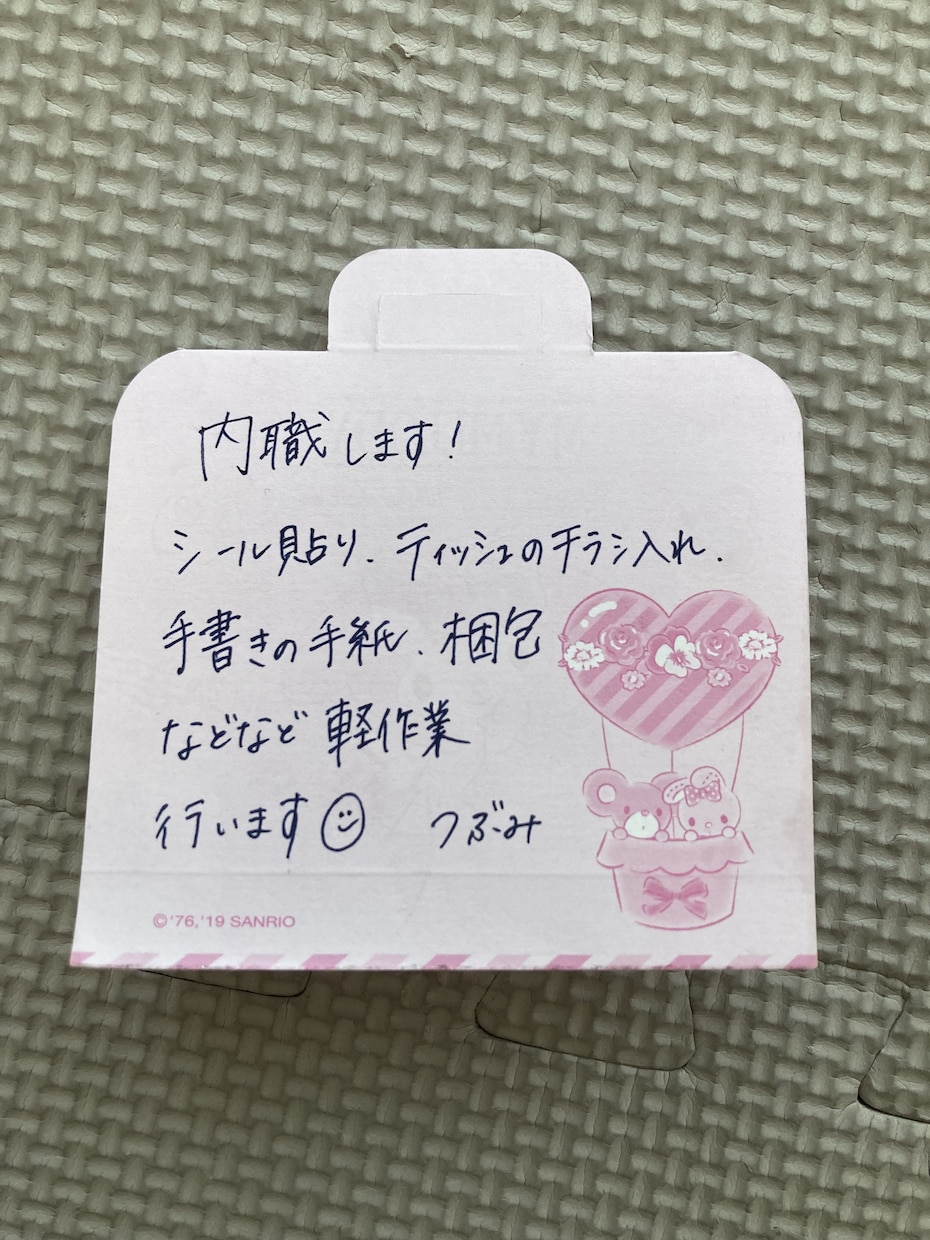 内職します!
シール貼り、ティッシュのチラシ入れ、
手書きの手紙、梱包
などなど 軽作業
行います☺ つぶみ
©'76,'19 SANRIO